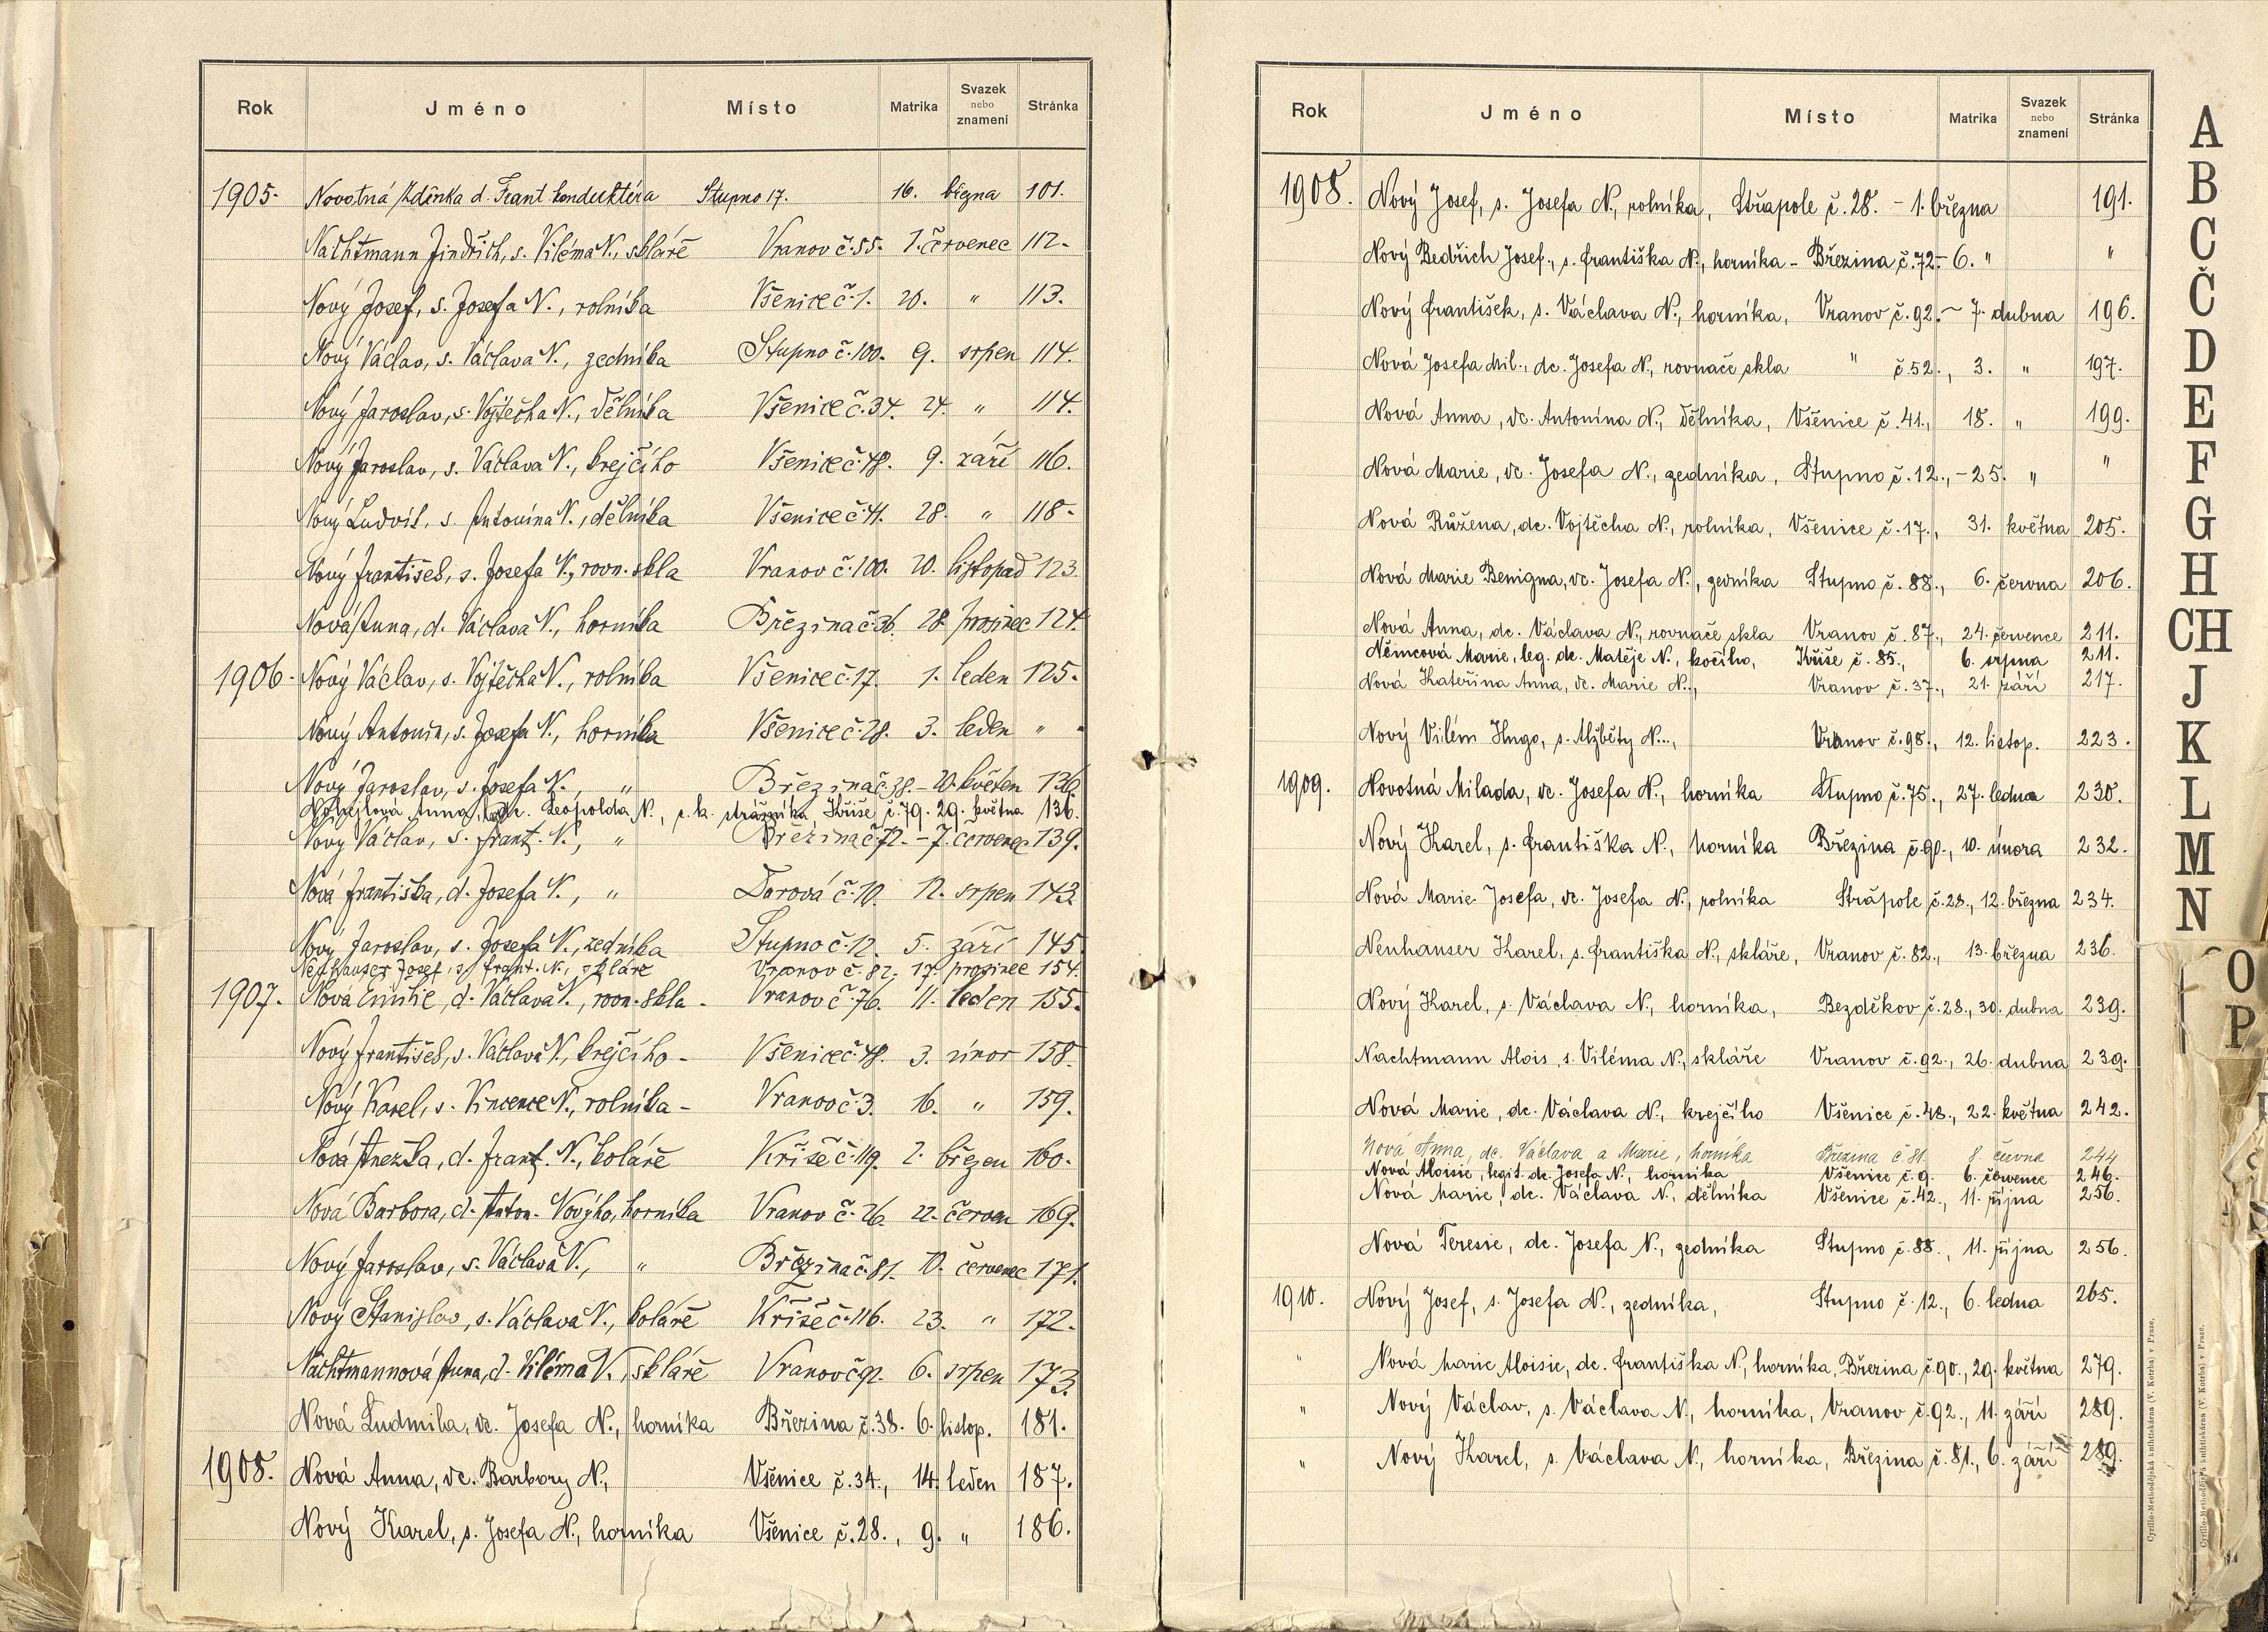 Rok Jméno Místo Matrika Svazek nebo znamení Stránka
1905. Novotná Zdeňka d. Frant. konduktéra Stupno 17. 16. března 101.
Nachtmann Jindřich, s. Viléma N., skláře Vranov č. 55. 1. červenec 112.
Nový Josef, s. Josefa N., rolníka Všenice č. 1. 20. " 113.
Nový Václav, s. Václava N., zedníka Stupno č. 100. 9. srpen 114.
Nový Jaroslav, s. Vojtěcha N., dělníka Všenice č. 34. 24. " 114.
Nový Jaroslav, s. Václava N., krejčího Všenice č. 48. 9. září 116.
Nový Ludvík, s. Antonína N., dělníka Všenice č. 41. 28. " 118.
Nový František, s. Josefa N., rovn. skla Vranov č. 100. 20. listopad 123.
Nová Anna, d. Václava N., horníka Březina č. 36. 28. prosinec 124.
1906. Nový Václav, s. Vojtěcha N., rolníka Všenice č. 17. 1. leden 125.
Nový Antonín, s. Josefa N., horníka Všenice č. 28. 3. leden " "
Nový Jaroslav, s. Josefa N., " Březina č. 38. - 20. květen 136.
Anna, Leopolda N., c. k. strážníka, Kříše č. 79. 29. května 136.
Nový Václav, s. Frant. N., " Březina č. 72. - 7. červenec 139.
Nová Františka, d. Josefa N., " Darová č. 10. 12. srpen 143.
Nový Jaroslav, s. Josefa N., zedníka Stupno č. 12. 5. září 145.
Neuhauser Josef, s. Frant. N., skláře Vranov č. 82. 17. prosinec 154.
1907. Nová Emilie, d. Václava N., rovn. skla - Vranov č. 76. 11. leden 155.
Nový František, s. Václava N., krejčího - Všenice č. 48. 3. únor 158.
Nový Karel, s. Vincence N., rolníka - Vranov č. 3. 16. " 159.
Nová Anežka, d. Frant. N., koláře Kříše č. 119. 2. březen 160.
Nová Barbora, d. Anton. Nového, horníka Vranov č. 26. 22. červen 169.
Nový Jaroslav, s. Václava N., " Březina č. 81. 10. červenec 171.
Nový Stanislav, s. Václava N., koláře Kříše č. 116. 23. " 172.
Nachtmannová Anna, d. Viléma N., skláře Vranov č. 92. 6. srpen 173.
Nová Ludmila, dc. Josefa N., horníka Březina č. 38. 6. listop. 181.
1908. Nová Anna, dc. Barbory N., Všenice č. 34., 14. leden 187.
Nový Karel, s. Josefa N., horníka Všenice č. 28., 9. " 186.
Rok Jméno Místo Matrika Svazek nebo znamení Stránka
1908. Nový Josef, s. Josefa N., rolníka, Střapole č. 28. - 1. března 191.
Nový Bedřich Josef., s. Františka N., horníka - Březina č. 72. - 6. " "
Nový František, s. Václava N., horníka, Vranov č. 92. - 7. dubna 196.
Nová Josefa Mil., dc. Josefa N., rovnače skla " č. 52., 3. " 197.
Nová Anna, dc. Antonína N., dělníka, Všenice č. 41., 18. " 199.
Nová Marie, dc. Josefa N., zedníka, Stupno č. 12., - 25. " "
Nová Růžena, dc. Vojtěcha N., rolníka, Všenice č. 17., 31. května 205.
Nová Marie Benigna, dc. Josefa N., zedníka Stupno č. 88., 6. června 206.
Nová Anna, dc. Václava N., rovnače skla Vranov č. 87., 24. července 211.
Němcová Marie, leg. dc. Matěje N., kočího, Kříše č. 85., 6. srpna 211.
Nová Kateřina Anna, dc. Marie N., Vranov č. 37., 21. září 217.
Nový Vilém Hugo, s. Alžběty N..., Vranov č. 98., 12. listop. 223.
1909. Novotná Milada, dc. Josefa N., horníka Stupno č. 75., 27. ledna 230.
Nový Karel, s. Františka N., horníka Březina č. 90., 10. února 232.
Nová Marie Josefa, dc. Josefa N., rolníka Strápole č. 28., 12. března 234.
Neuhauser Karel, s. Františka N., skláře, Vranov č. 82., 13. března 236.
Nový Karel, s. Václava N., horníka, Bezděkov č. 28., 30. dubna 239.
Nachtmann Alois, s. Viléma N., skláře Vranov č. 92., 26. dubna 239.
Nová Marie, dc. Václava N., krejčího Všenice č. 48., 22. května 242.
Nová Anna, dc. Václava a Marie, horníka Březina č. 81. 8. června 244
Nová Aloisie, legit. dc. Josefa N., horníka Všenice č. 9. 6. července 246.
Nová Marie, dc. Václava N., dělníka Všenice č. 42., 11. října 256.
Nová Teresie, dc. Josefa N., zedníka Stupno č. 88., 11. října 256.
1910. Nový Josef, s. Josefa N., zedníka, Stupno č. 12., 6. ledna 265.
" Nová Marie Aloisie, dc. Františka N., horníka, Březina č. 90., 29. května 279.
" Nový Václav, s. Václava N., horníka, Vranov č. 92., 11. září 289.
" Nový Karel, s. Václava N., horníka, Březina č. 81., 6. září 289.
Cyrillo-Methodějská knihtiskárna (V. Kotrba) v Praze.
Cyrillo-Methodějská knihtiskárna (V. Kotrba) v Praze.
A
B
C
Č
D
E
F
G
H
CH
J
K
L
M
N
O
P